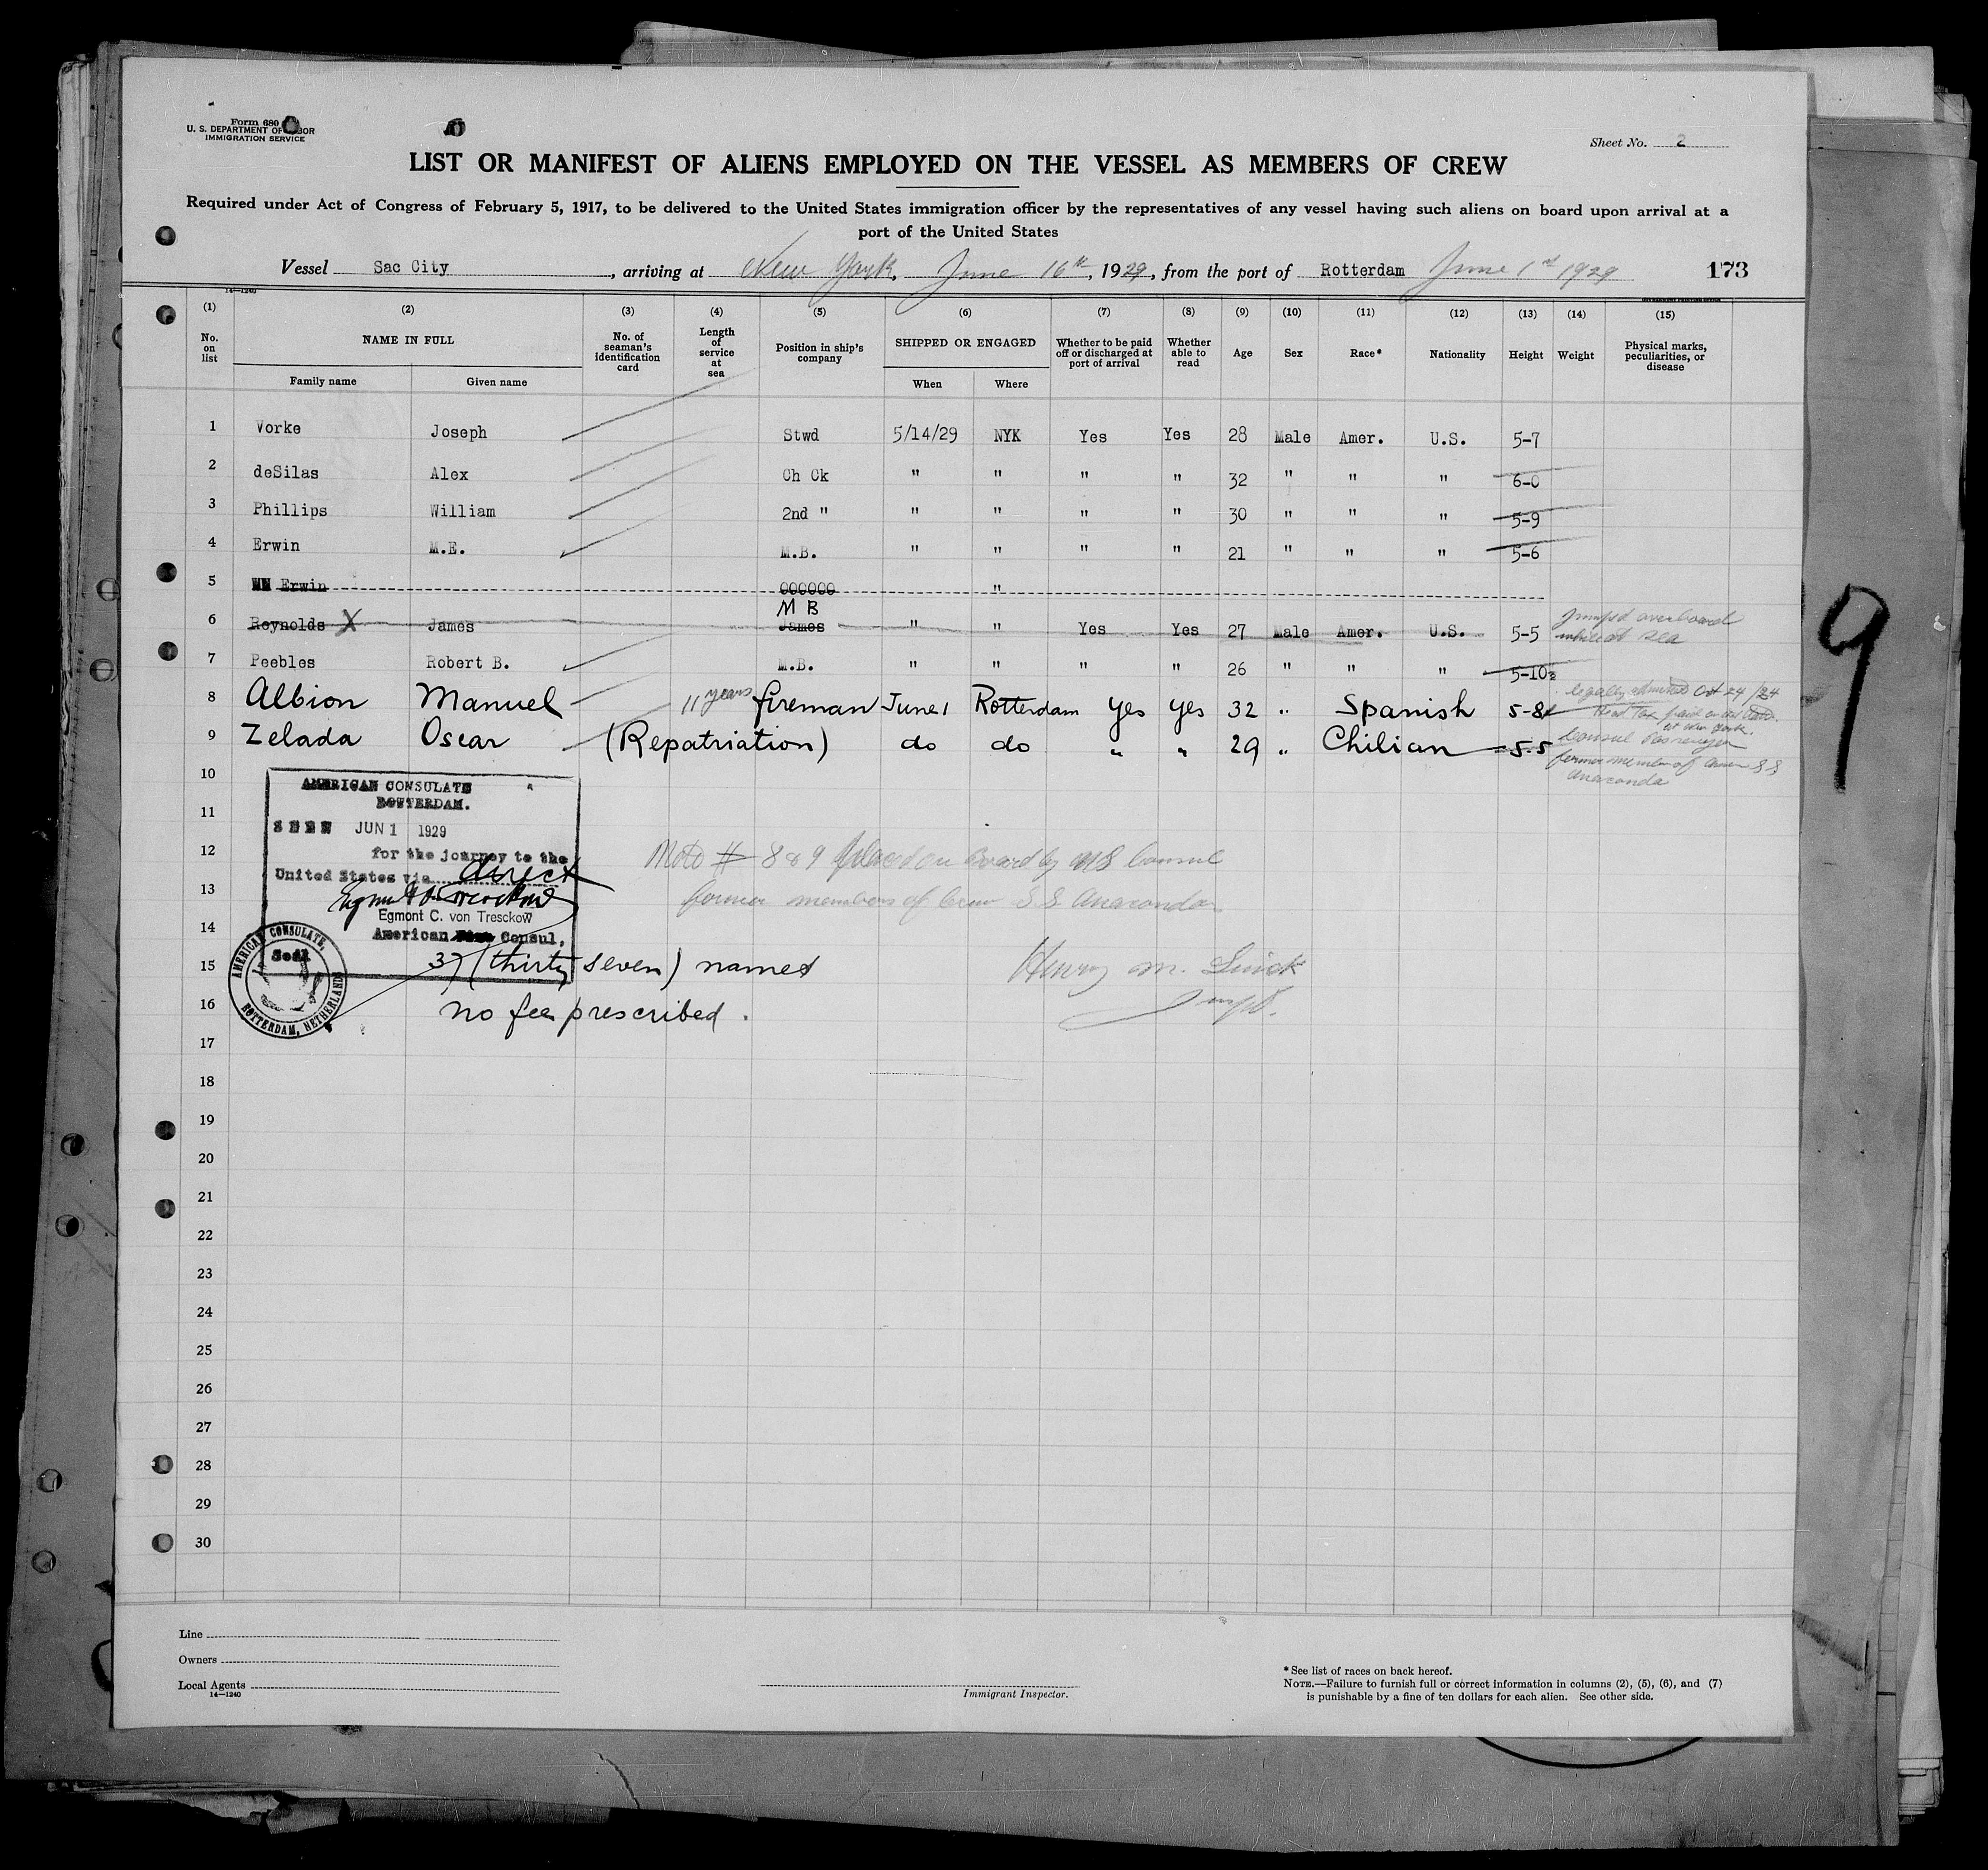 Form 680
U. S. DEPARTMENT OF LABOR
IMMIGRATION SERVICE
Sheet No. 2
LIST OR MANIFEST OF ALIENS EMPLOYED ON THE VESSEL AS MEMBERS OF CREW
Required under Act of Congress of February 5, 1917, to be delivered to the United States immigration officer by the representatives of any vessel having such aliens on board upon arrival at a
port of the United States
Vessel Sac City, arriving at New York, June 16th, 1929, from the port of Rotterdam June 1st 1929 173
14—1240
(1) (2) (3) (4) (5) (6) (7) (8) (9) (10) (11) (12) (13) (14) (15)
No. on list NAME IN FULL No. of seaman's identification card Length of service at sea Position in ship's company SHIPPED OR ENGAGED Whether to be paid off or discharged at port of arrival Whether able to read Age Sex Race* Nationality Height Weight Physical marks, peculiarities, or disease
Family name Given name When Where
1 Vorke Joseph Stwd 5/14/29 NYK Yes Yes 28 Male Amer. U.S. 5-7
2 deSilas Alex Ch Ck " " " " 32 " " " 6-0
3 Phillips William 2nd " " " " " 30 " " " 5-9
4 Erwin M.E. M.B. " " " " 21 " " " 5-6
5 Erwin 000000 "
M B
6 Reynolds X James James " " Yes Yes 27 Male Amer. U.S. 5-5 jumped overboard while at sea
7 Peebles Robert B. M.B. " " " " 26 " " " 5-10½
8 Albion Manuel 11 years fireman June 1 Rotterdam Yes Yes 32 " Spanish 5-8 legally admitted Oct 24/24
Head Tax paid
at New York.
9 Zelada Oscar (Repatriation) do do " " 29 " Chilian 5-5 Consul Passenger
former member of Amer S S
Anaconda
10
AMERICAN CONSULATE
ROTTERDAM.
11
SEEN JUN 1 1929
12
for the journey to the
United States via direct
Note # 8 & 9 placed on board by US Consul
13
former members of Crew S.S. Anaconda
Egmont C. von Tresckow
14
American Vice Consul,
Seal
AMERICAN CONSULATE, ROTTERDAM, NETHERLANDS
15 37 (thirty seven) names
Henry M.
16 no fee prescribed.
Insp.
17
18
19
20
21
22
23
24
25
26
27
28
29
30
9
Line
Owners
Local Agents
14—1240
Immigrant Inspector.
* See list of races on back hereof.
NOTE.—Failure to furnish full or correct information in columns (2), (5), (6), and (7)
is punishable by a fine of ten dollars for each alien. See other side.